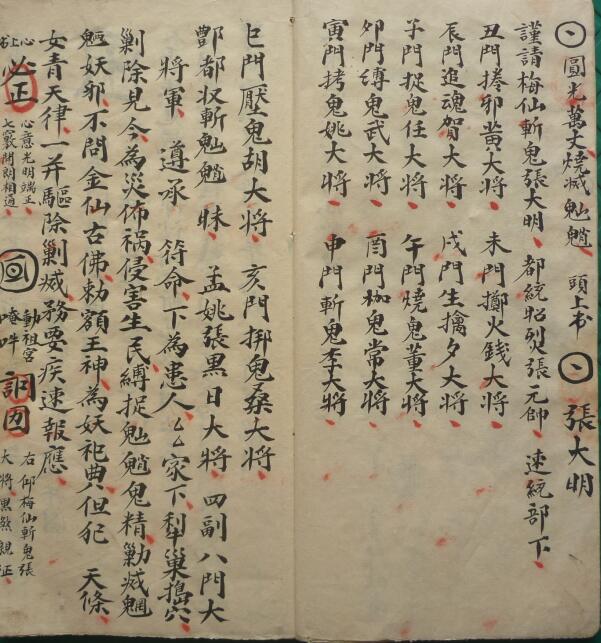 圓光萬丈燒滅鬽魈 頭上书 張大明
謹請梅仙斬鬼張大明、都統昭烈張元帥、速統部下、
丑門捲邪黄大將、未門擲火錢大將、
辰門追魂賀大將、戌門生擒夕大將、
子門捉鬼任大將、午門燒鬼董大將、
夘門縛鬼武大將、酉門枷鬼常大將、
寅門拷鬼姚大將、申門斬鬼李大將、
巳門壓鬼胡大將、亥門掷鬼桑大將、
酆都收斬鬽魈 昧、孟姚張黑日大將、四副八門大
將軍、遵承 符命、下為患人厶厶家下、犁巢搗穴
剿除見今為災佈祸、侵害生民、縛捉鬽魈鬼精、勦滅魍
魎妖邪、不問金仙古佛、勅額王神、為妖祀典、但犯 天條、
女青天律、一并驅除剿滅、務要疾速報應、
心上书 必正 心意光明端正、
七竅開朗相通、
動祖宫
唵吽
右仰梅仙斬鬼張
大將黑煞親征、